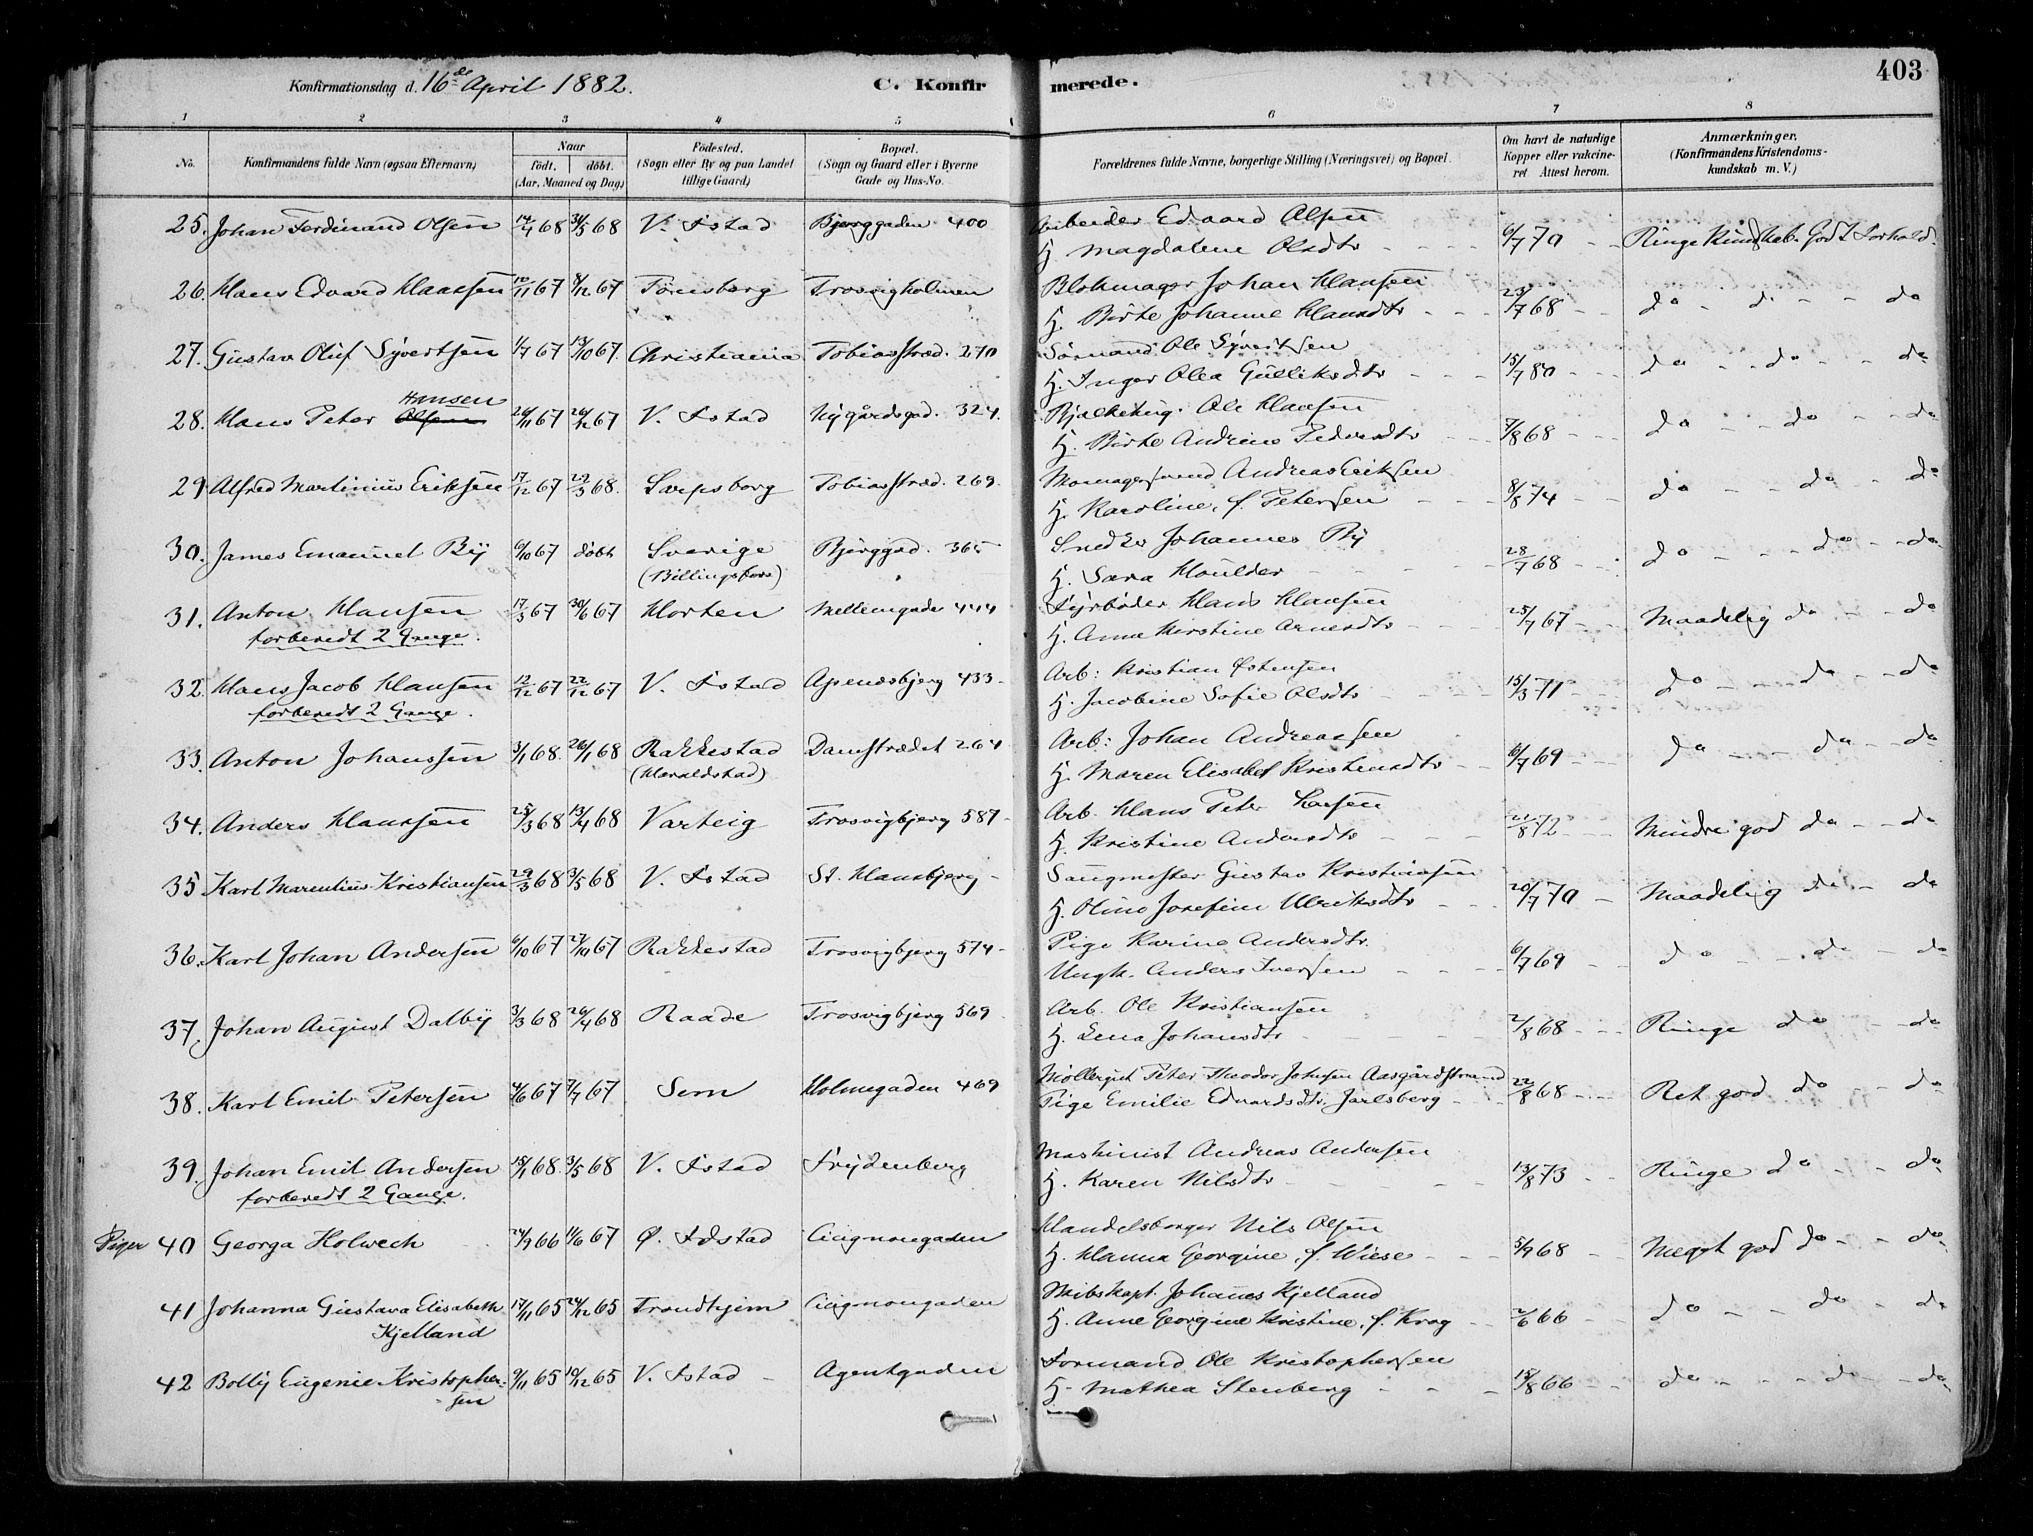 Konfirmationsdag d. 16de April 1882.
C. Konfirmerede.
403
1 2 3 4 5 6 7 8
No. Konfirmandens fulde Navn (ogsaa Efternavn) Naar født. døbt. (Aar, Maaned og Dag) Fødested. (Sogn eller By og paa Landet tillige Gaard) Bopæl. (Sogn og Gaard eller i Byerne Gade og Hus-No. Forældrenes fulde Navne, borgerlige Stilling (Næringsvei) og Bopæl. Om havt de naturlige Kopper eller vakcineret Attest herom. Anmærkninger. (Konfirmandens Kristendomskundskab m. V.)
25. Johan Ferdinand Olsen 14/4 68 31/5 68 V. Fstad Bjerggaden 400 Arbeider Edvard Olsen 6/7 70 Ringe Kundskab. God Forhold.
H. Magdalene Olsdtr
26. Hans Edvard Hanssen 10/11 67 8/12 67 Tønsberg Trosvigholmen Blokmager Johan Hansen 23/7 68 do do do
H. Birte Johanne Hansdtr
27. Gustav Oluf Syvertsen 1/7 67 13/10 67. Christiania Tobiasstræd. 270 Sømand Ole Syvertsen 15/7 80 do do do
H. Inger Olea Gulliksdtr
Hansen
28. Hans Peter Olsen 26/11 67 26/12 67 V. Fstad Nygårdsgad. 324. Ole Hansen 7/8 68 do do do
H. Birte Andrine Pedersdtr
29 Alfred Martinius Eriksen 17/12 67 29/3 68. Sarpsborg Tobiasstræd. 269. Andreas Eriksen 8/8 74 do do do
H. Karoline, f. Petersen
30. James Emanuel By 6/10 67 døbt Sverige Bjerggad. 365 Snedker Johannes By 28/7 68 do do do
(Billingsfors) H. Sara Houlder
31. Anton Hansen 17/3 67 30/6 67 Horten Mellemgaden 444 Fyrbøder Hans Hansen 25/7 67 Maadelig do do
forberedt 2 Gange. H. Anna Kirstine Arnesdtr
32. Hans Jacob Hansen 12/12 67 22/12 67 V. Fstad Apenæsbjerg 433 Arb: Kristian Østensen 15/3 71 do do do
forberedt 2 Gange. H. Jacobine Sofie Olsdtr
33. Anton Johanssen 3/1 68. 26/1 68 Rakkestad Damstrædet 264 Arb: Johan Andreassen 6/7 69 do do do
(Haraldstad) H. Maren Elisabet Kristensdtr
34. Anders Hanssen 25/3 68 13/4 68 Varteig Trosvigbjerg 587 Arb. Hans Peter Larsen 21/8 72 Mindre god do do
H. Kristine Andersdtr
35 Karl Marentius Kristiansen 29/3 68 3/5 68 V. Fstad St. Hansbjerg Saugmester Gustav Kristiansen 20/7 70 Maadelig do do
H. Oline Josefine Ulriksdtr
36. Karl Johan Andersen 6/10 67 27/10 67 Rakkestad Trosvigbjerg 574 Pige Karine Andersdtr. 6/7 69 do do do
Ungk. Anders Iversen
37. Johan August Dalby 3/3 68 26/4 68 Raade Trosvigbjerg 569 Arb. Ole Kristiansen 2/8 68 Ringe do do
H. Lena Johansdtr
38. Karl Emil Petersen 4/6 67 7/7 67 Sem Holmegaden 469 Møllergut Peter Theodor Johnsen Aasgårdstrand 22/8 68 Ret god do do
Pige Emilie Edvardsdtr. Jarlsberg
39. Johan Emil Andersen 15/1 68. 3/5 68 V. Fstad Frydenberg Maskinist Andreas Andersen 13/8 73 Ringe do do
forberedt 2 Gange. H. Karen Nilsdtr
Piger 40 Georga Holweck 24/9 66 11/6 67 Ø. Fdstad Cicignongaden Handelsborger Nils Olsen 5/9 68 Meget god do do
H. Hanna Georgine, f. Wiese
41 Johanna Gustava Elisabeth 17/11 65 24/12 65 Trondhjem Cicignongaden Skibskapt. Johanes Kjelland 2/6 66 do do do
Kjelland H. Anne Georgine Kristine, f. Krog
42 Bolly Eugenie Kristopher- 9/11 65 10/12 65 V. Fstad Agentgaden Formand Ole Kristophersen 18/8 66 do do do
sen H. Mathea Stenberg